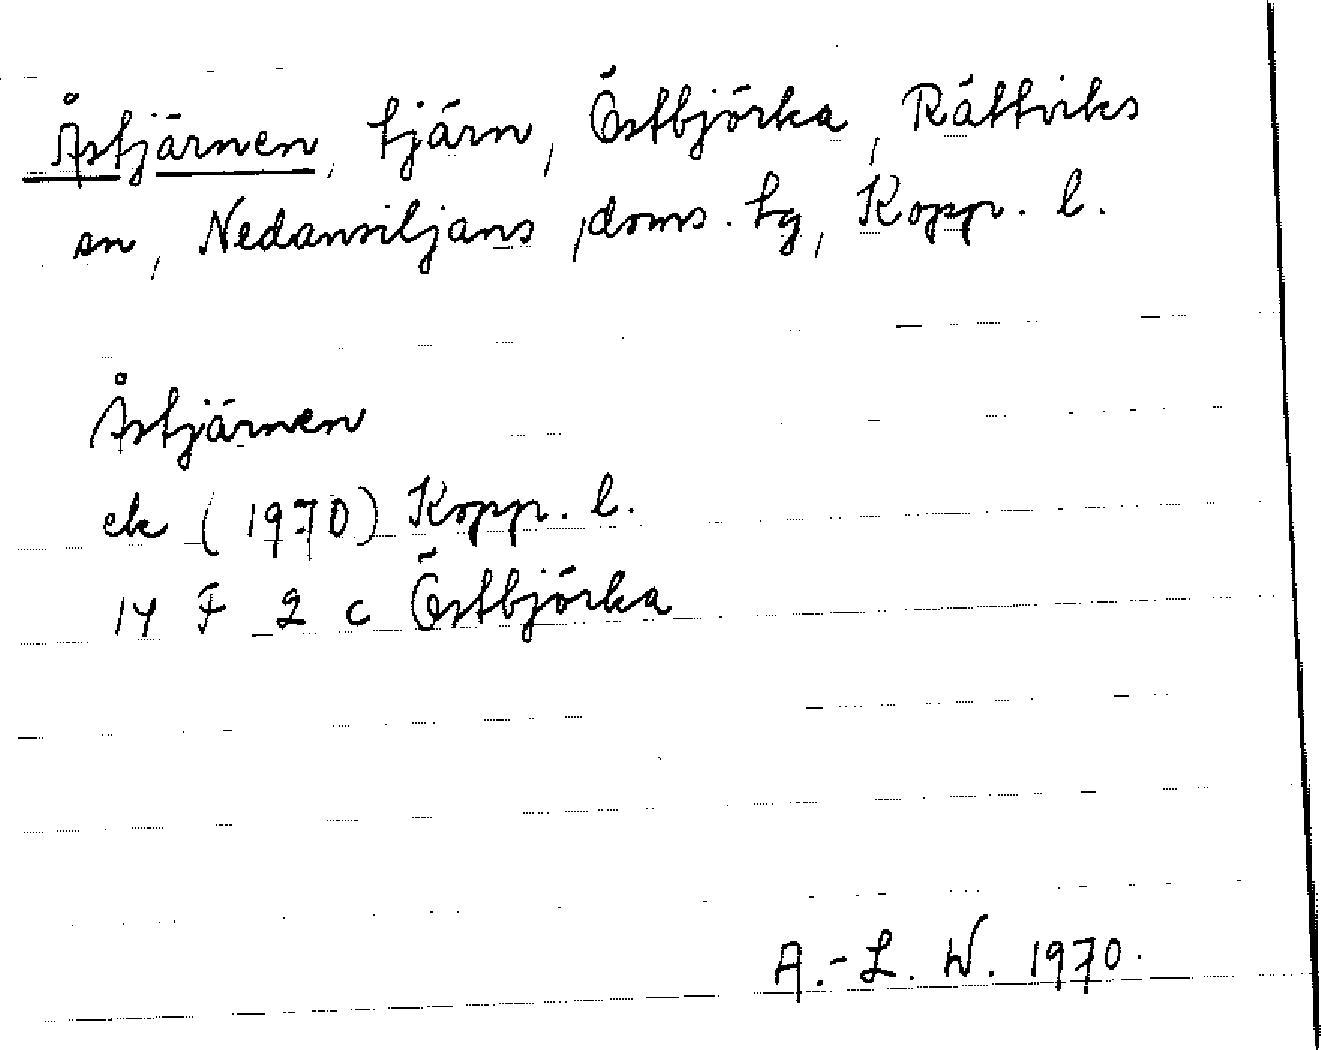 Åstjärnen, tjärn, Östbjörka, Rättviks
sn, Nedansiljans doms. tg, Kopp. l.
Åstjärnen
ek (1970) Kopp. l.
14 F 2 c Östbjörka
A.-L. W. 1970.